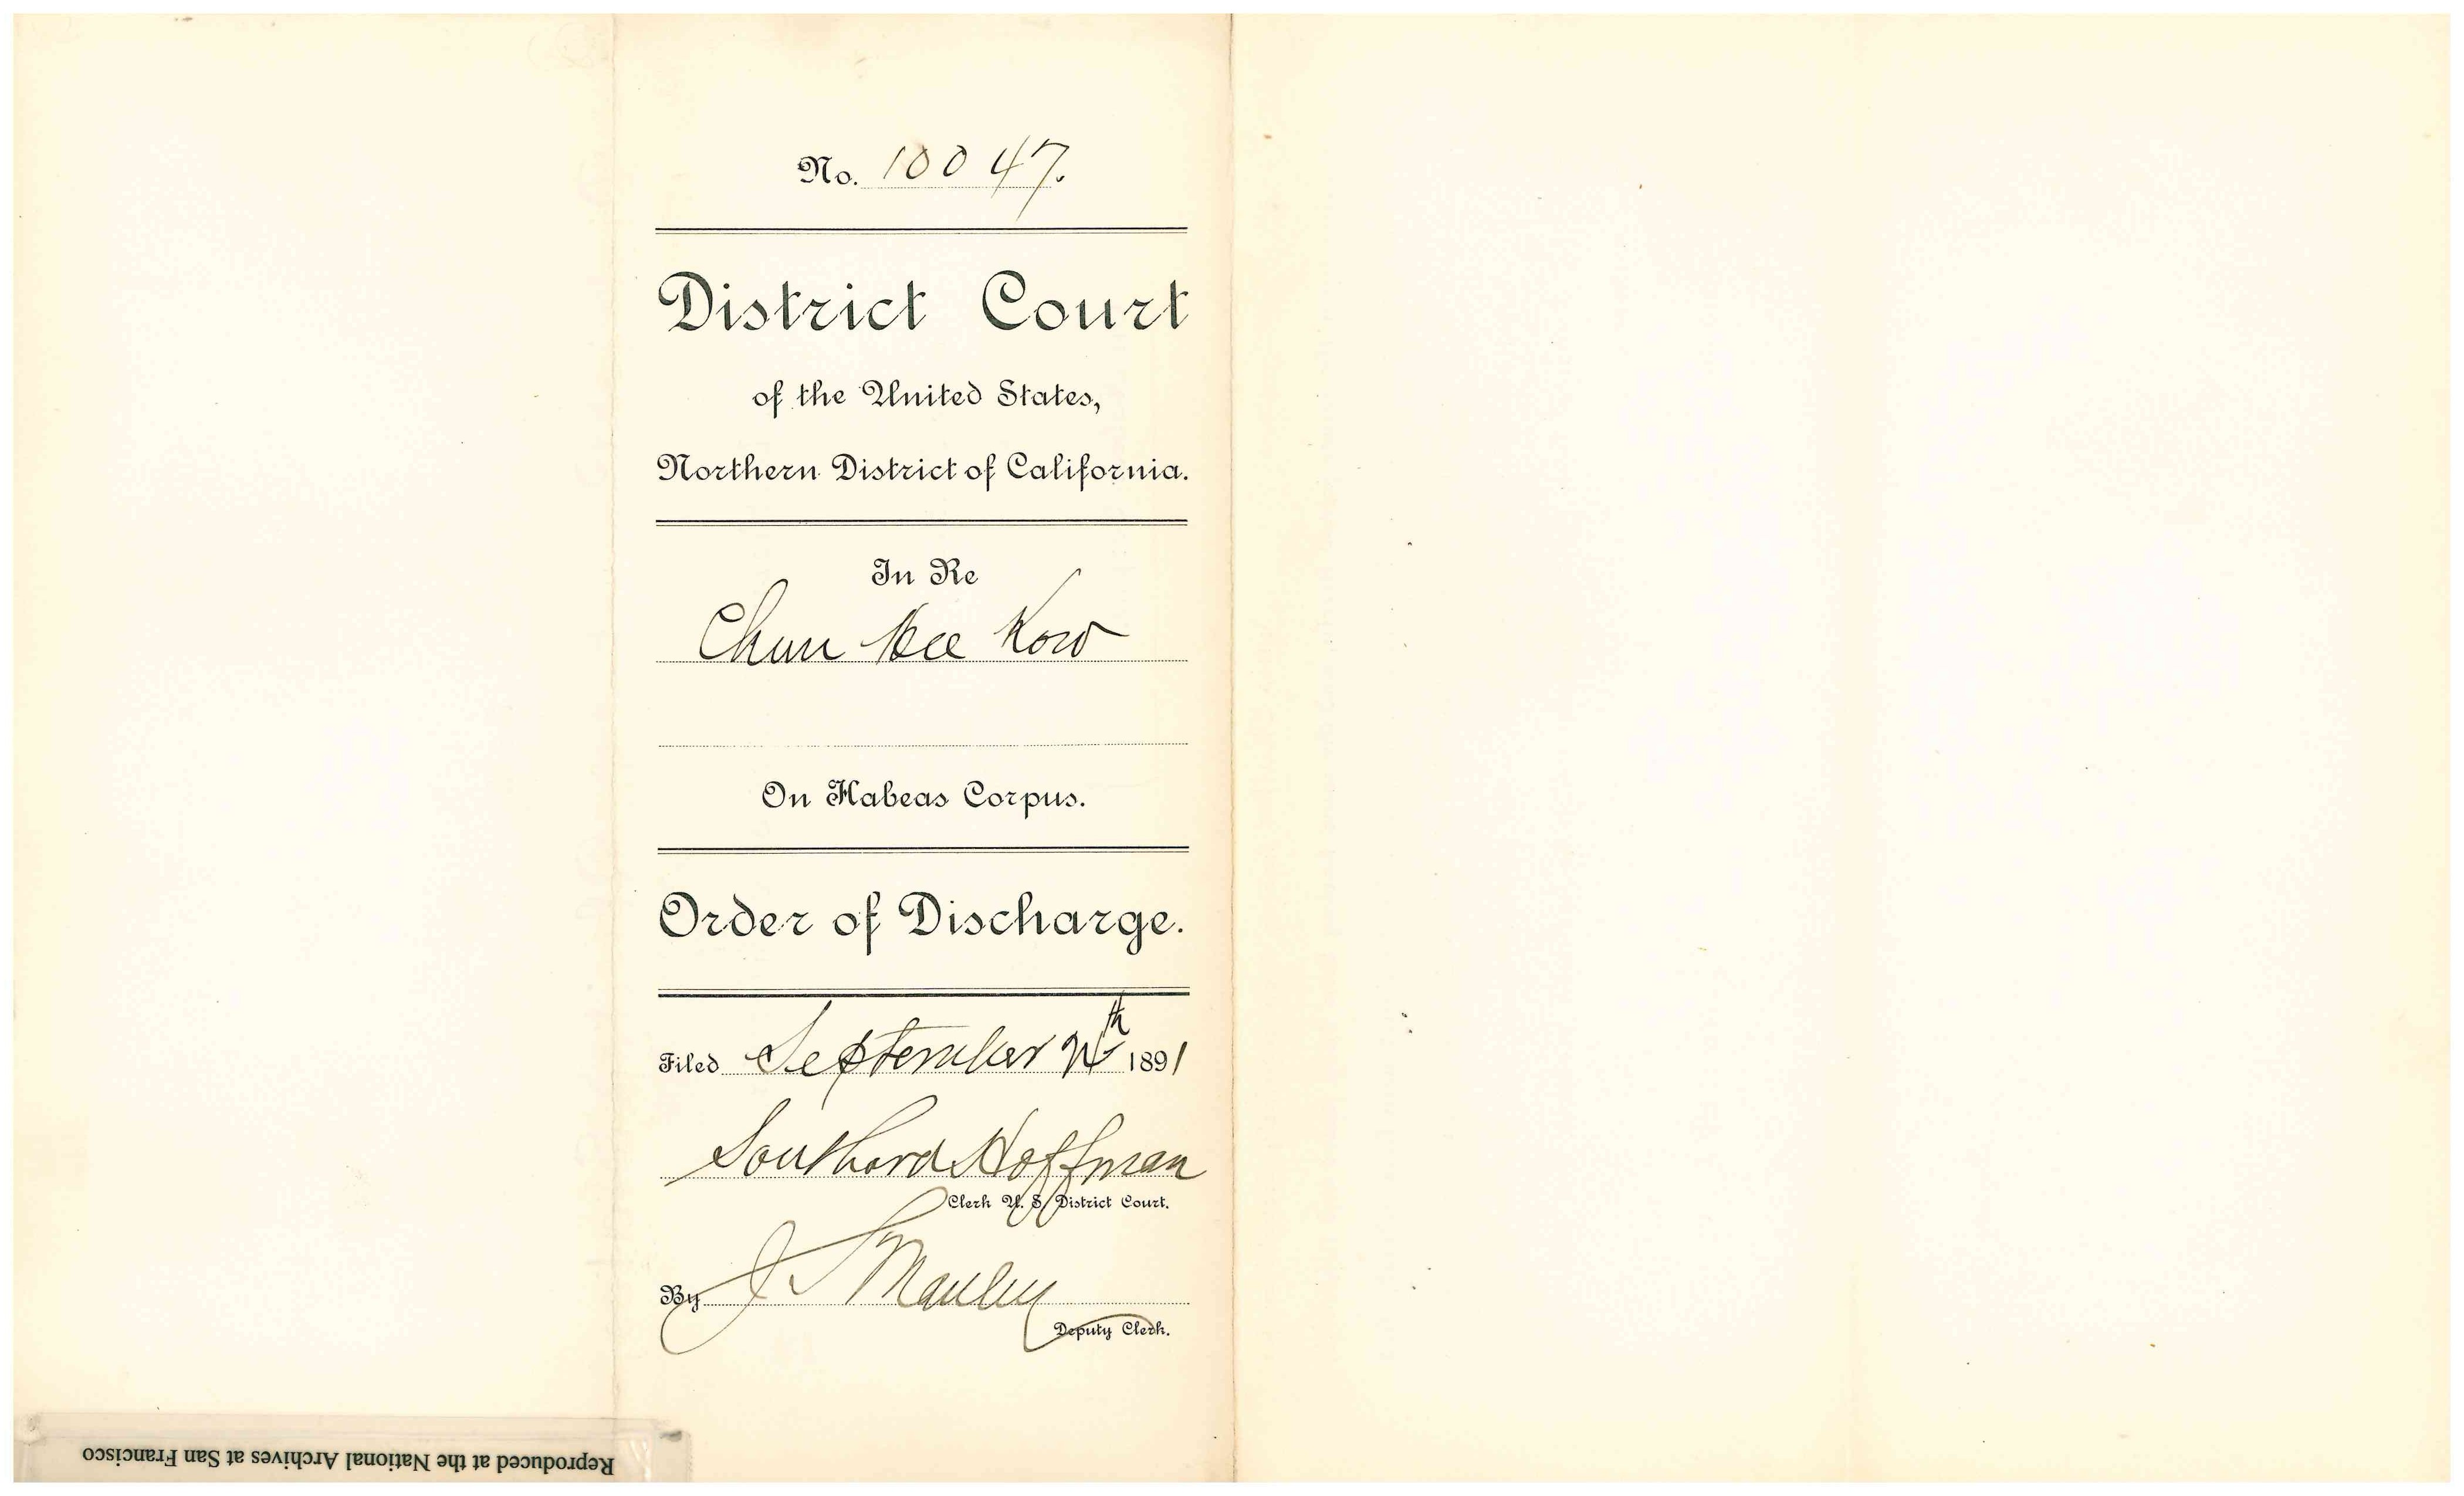 No. 10047.
District Court
of the United States,
Northern District of California.
In Re
Chun Kow
On Habeas Corpus.
Order of Discharge.
Filed September th 1891
Southard Hoffman
Clerk U. S. District Court.
By J S Manley
Deputy Clerk.
Reproduced at the National Archives at San Francisco